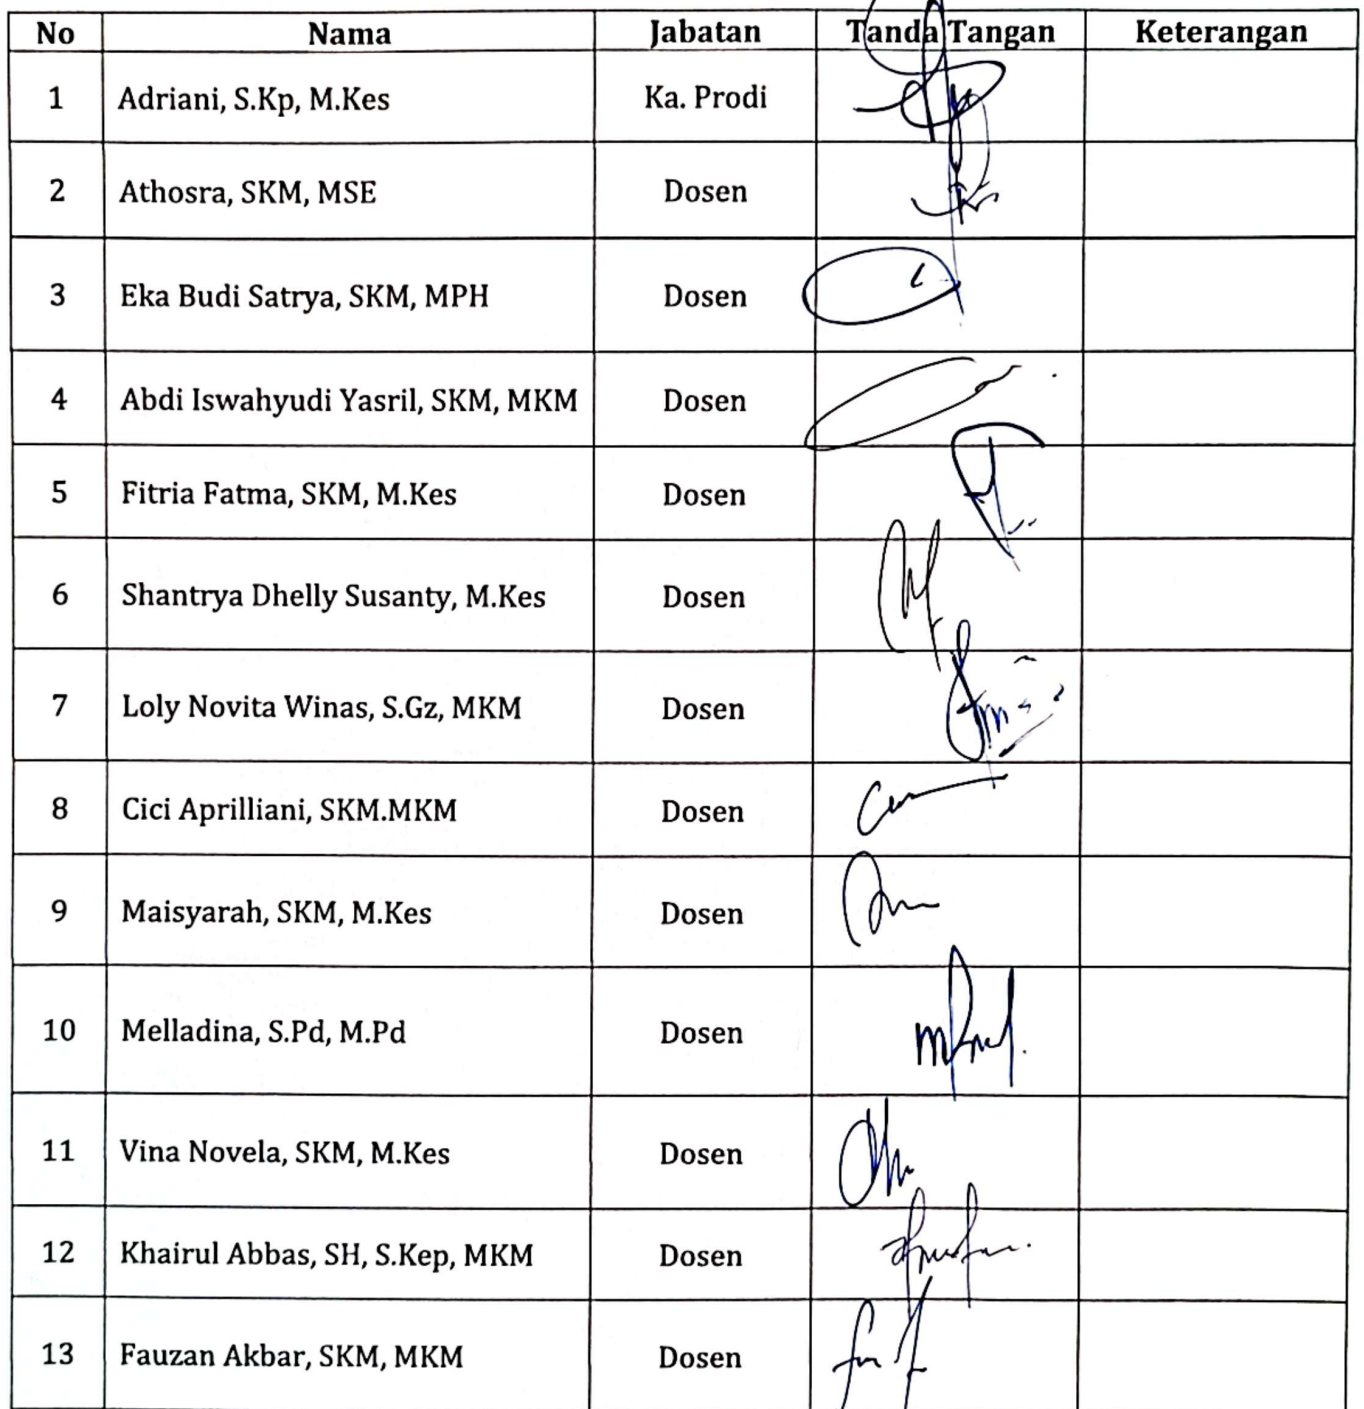 No Nama Jabatan Tanda Tangan Keterangan
1 Adriani, S.Kp, M.Kes Ka. Prodi
2 Athosra, SKM, MSE Dosen
3 Eka Budi Satrya, SKM, MPH Dosen
4 Abdi Iswahyudi Yasril, SKM, MKM Dosen
5 Fitria Fatma, SKM, M.Kes Dosen
6 Shantrya Dhelly Susanty, M.Kes Dosen
7 Loly Novita Winas, S.Gz, MKM Dosen
8 Cici Aprilliani, SKM.MKM Dosen
9 Maisyarah, SKM, M.Kes Dosen
10 Melladina, S.Pd, M.Pd Dosen
11 Vina Novela, SKM, M.Kes Dosen
12 Khairul Abbas, SH, S.Kep, MKM Dosen
13 Fauzan Akbar, SKM, MKM Dosen